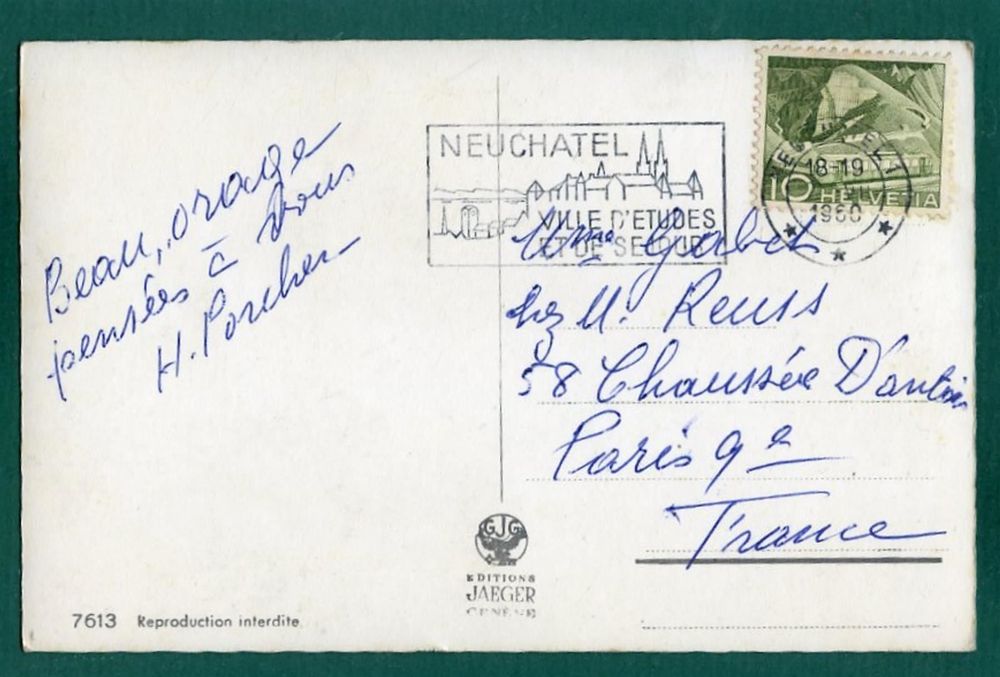 Beau, orage
pensées à vous
H. Porcher
NEUCHATEL
VILLE D'ETUDES
ET DE SEJOUR
18-19
1960
10 HELVETIA
Mme
chez M. Reuss
58 Chaussée D'antin
Paris 9e
France
GJG
EDITIONS
JAEGER
GENÈVE
7613 Reproduction interdite